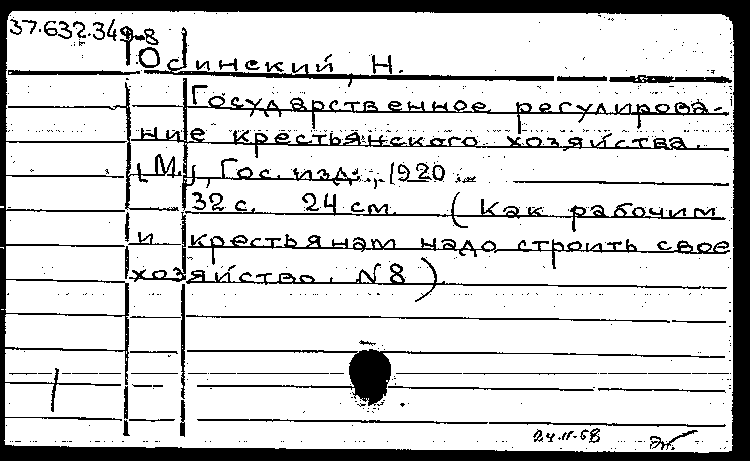 37.632.349-8
Осинский, Н.
Государственное регулирова-
ние крестьянского хозяйства.
[М.], Гос. изд., 1920.
32 с. 24 см. (Как рабочим
и крестьянам надо строить свое
хозяйство. N8).